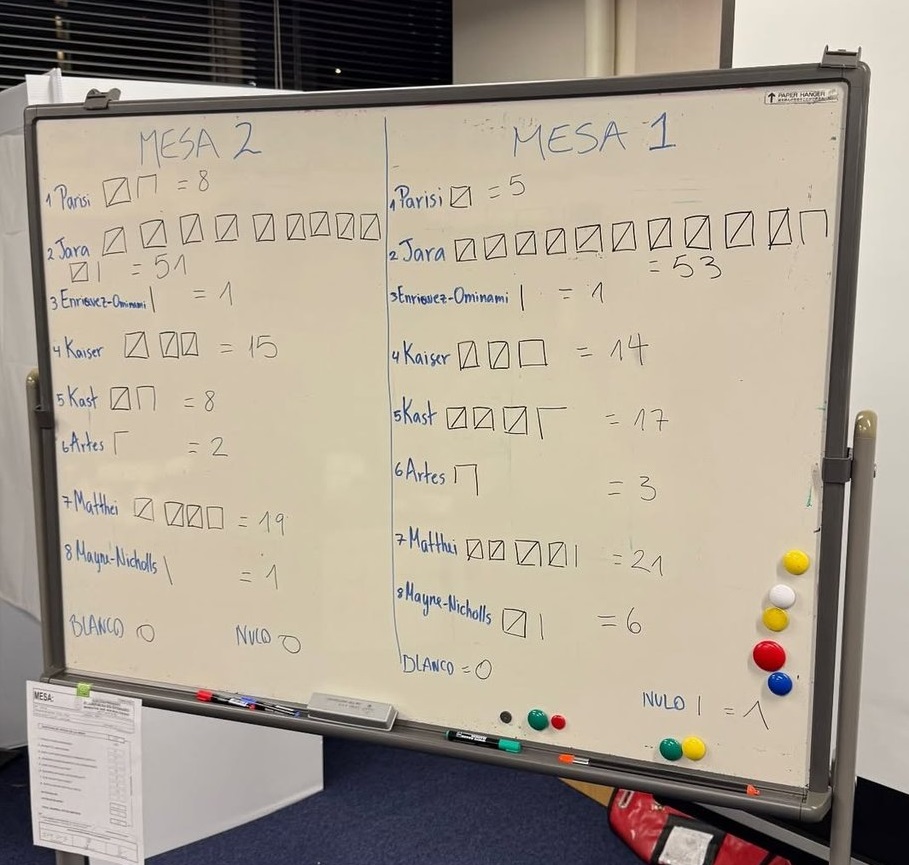 MESA 2
1 Parisi = 8
2 Jara
= 51
3 Enriquez-Ominami = 1
4 Kaiser = 15
5 Kast = 8
6 Artes = 2
7 Matthei = 19
8 Mayne-Nicholls = 1
BLANCO 0 NULO 0
MESA 1
1 Parisi = 5
2 Jara
= 53
3 Enriquez-Ominami = 1
4 Kaiser = 14
5 Kast = 17
6 Artes = 3
7 Matthei = 21
8 Mayne-Nicholls = 6
BLANCO = 0
NULO | = 1
PAPER HANGER
MESA: